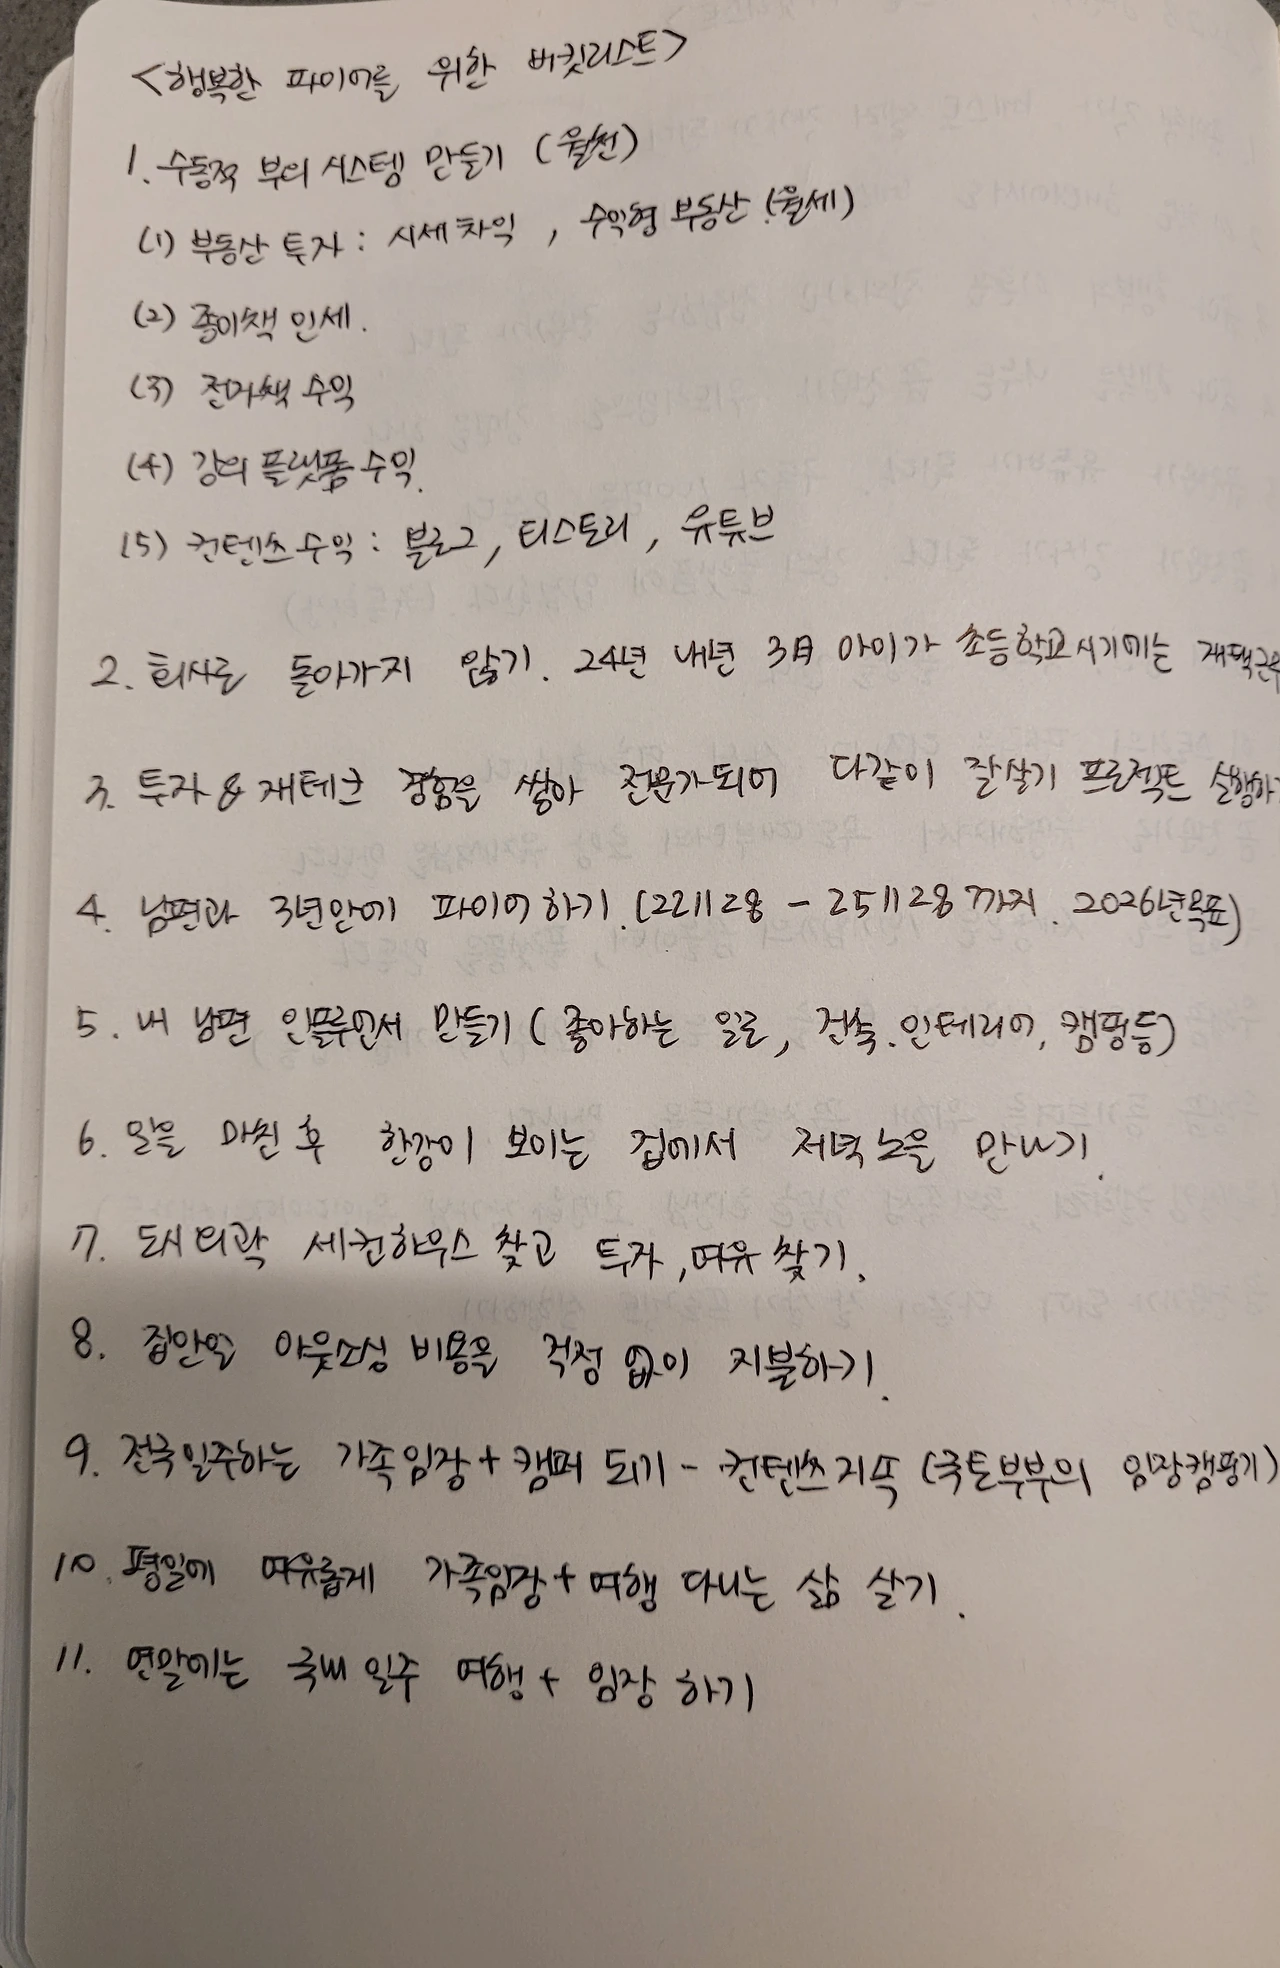 <행복한 파이어를 위한 버킷리스트>
1. 수동적 부의 시스템 만들기 (월천)
(1) 부동산 투자 : 시세차익 , 수익형 부동산 (월세)
(2) 종이책 인세.
(3) 전자책 수익
(4) 강의 플랫폼 수익.
(5) 컨텐츠 수익 : 블로그, 티스토리, 유튜브
2. 회사로 돌아가지 않기. 24년 내년 3月 아이가 초등학교시기에는 재택근무
3. 투자 & 재테크 경험을 쌓아 전문가되어 다같이 잘살기 프로젝트 실행하기
4. 남편과 3년안에 파이어하기.(221128 - 251128까지. 2026년목표)
5. 내 남편 인플루언서 만들기 ( 좋아하는 일로, 건축.인테리어, 캠핑등)
6. 일을 마친 후 한강이 보이는 집에서 저녁노을 만나기.
7. 도시외곽 세컨하우스 찾고 투자,여유 찾기.
8. 집안일 아웃소싱 비용을 걱정 없이 지불하기.
9. 전국일주하는 가족임장 + 캠퍼 되기 - 컨텐츠지속 (국토부부의 임장캠핑기)
10. 평일에 여유롭게 가족임장 + 여행 다니는 삶 살기.
11. 연말에는 국내일주 여행 + 임장 하기